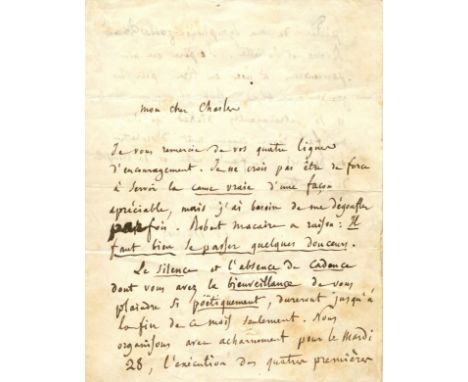 mon cher Charles
Je vous remercie de vos quatre lignes
d'encouragement. Je ne crois pas être de force
à servir la cause vraie d'une façon
apréciable, mais j'ai besoin de me dégonfler
parfois. Robert Macaire a raison: Il
faut bien se passer quelques douceurs.
Le silence et l'absence de cadence
dont vous avez la bienveillance de vous
plaindre si poëtiquement, dureront jusqu'à
la fin de ce mois seulement. Nous
organisons avec acharnement pour le Mardi
28, l'exécution des quatre premières